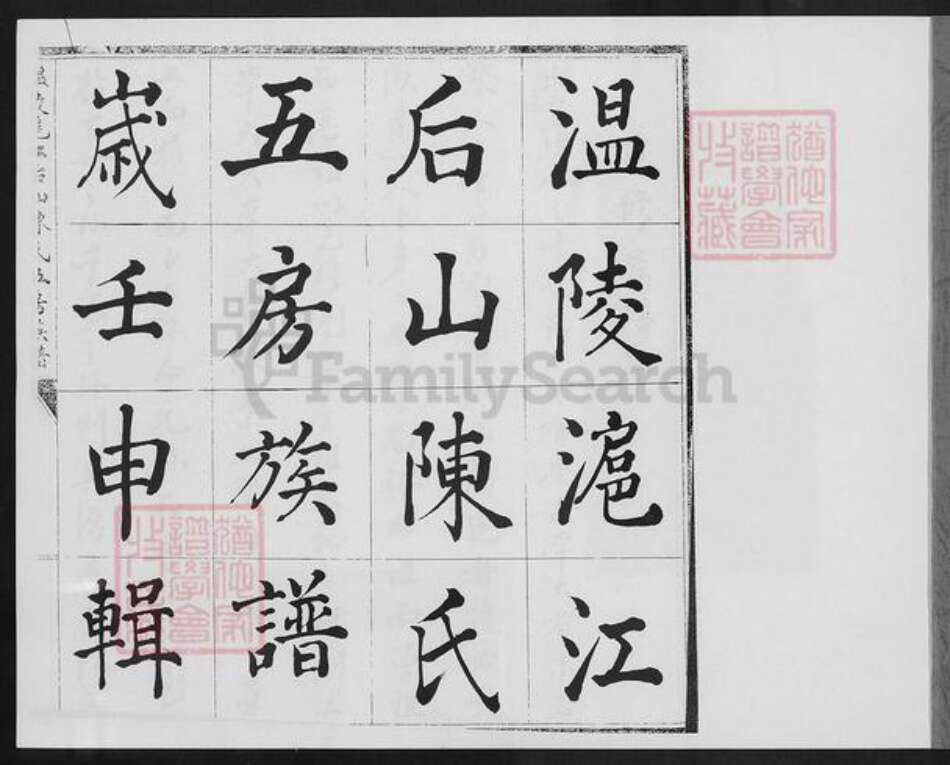 温陵滬江
后山陳氏
五房族譜
歲壬申輯
譜學會
收藏
FamilySearch